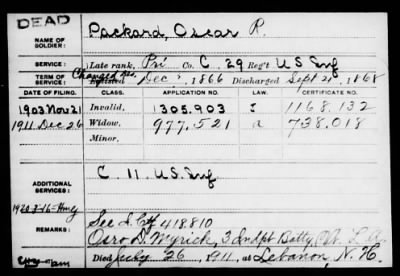 DEAD
NAME OF SOLDIER: Packard, Oscar R.
SERVICE: Late rank, Pri Co. C, 29 Reg't U.S. Inf
TERM OF SERVICE: Enlisted Dec 1866 Discharged Sept 21, 1868
DATE OF FILING. CLASS. APPLICATION NO. LAW. CERTIFICATE NO.
1903 Nov 21 Invalid, 1305.903 1168.132
1911 Dec 26 Widow, 977,521 a 738.018
Minor,
ADDITIONAL SERVICES: C 11. U.S. Inf
REMARKS: See I. Ctf 418810
Osro D. Myrick, 3 Indpt Batty, Vt. L.A.
Died July 26, 1911, at Lebanon, N.H.